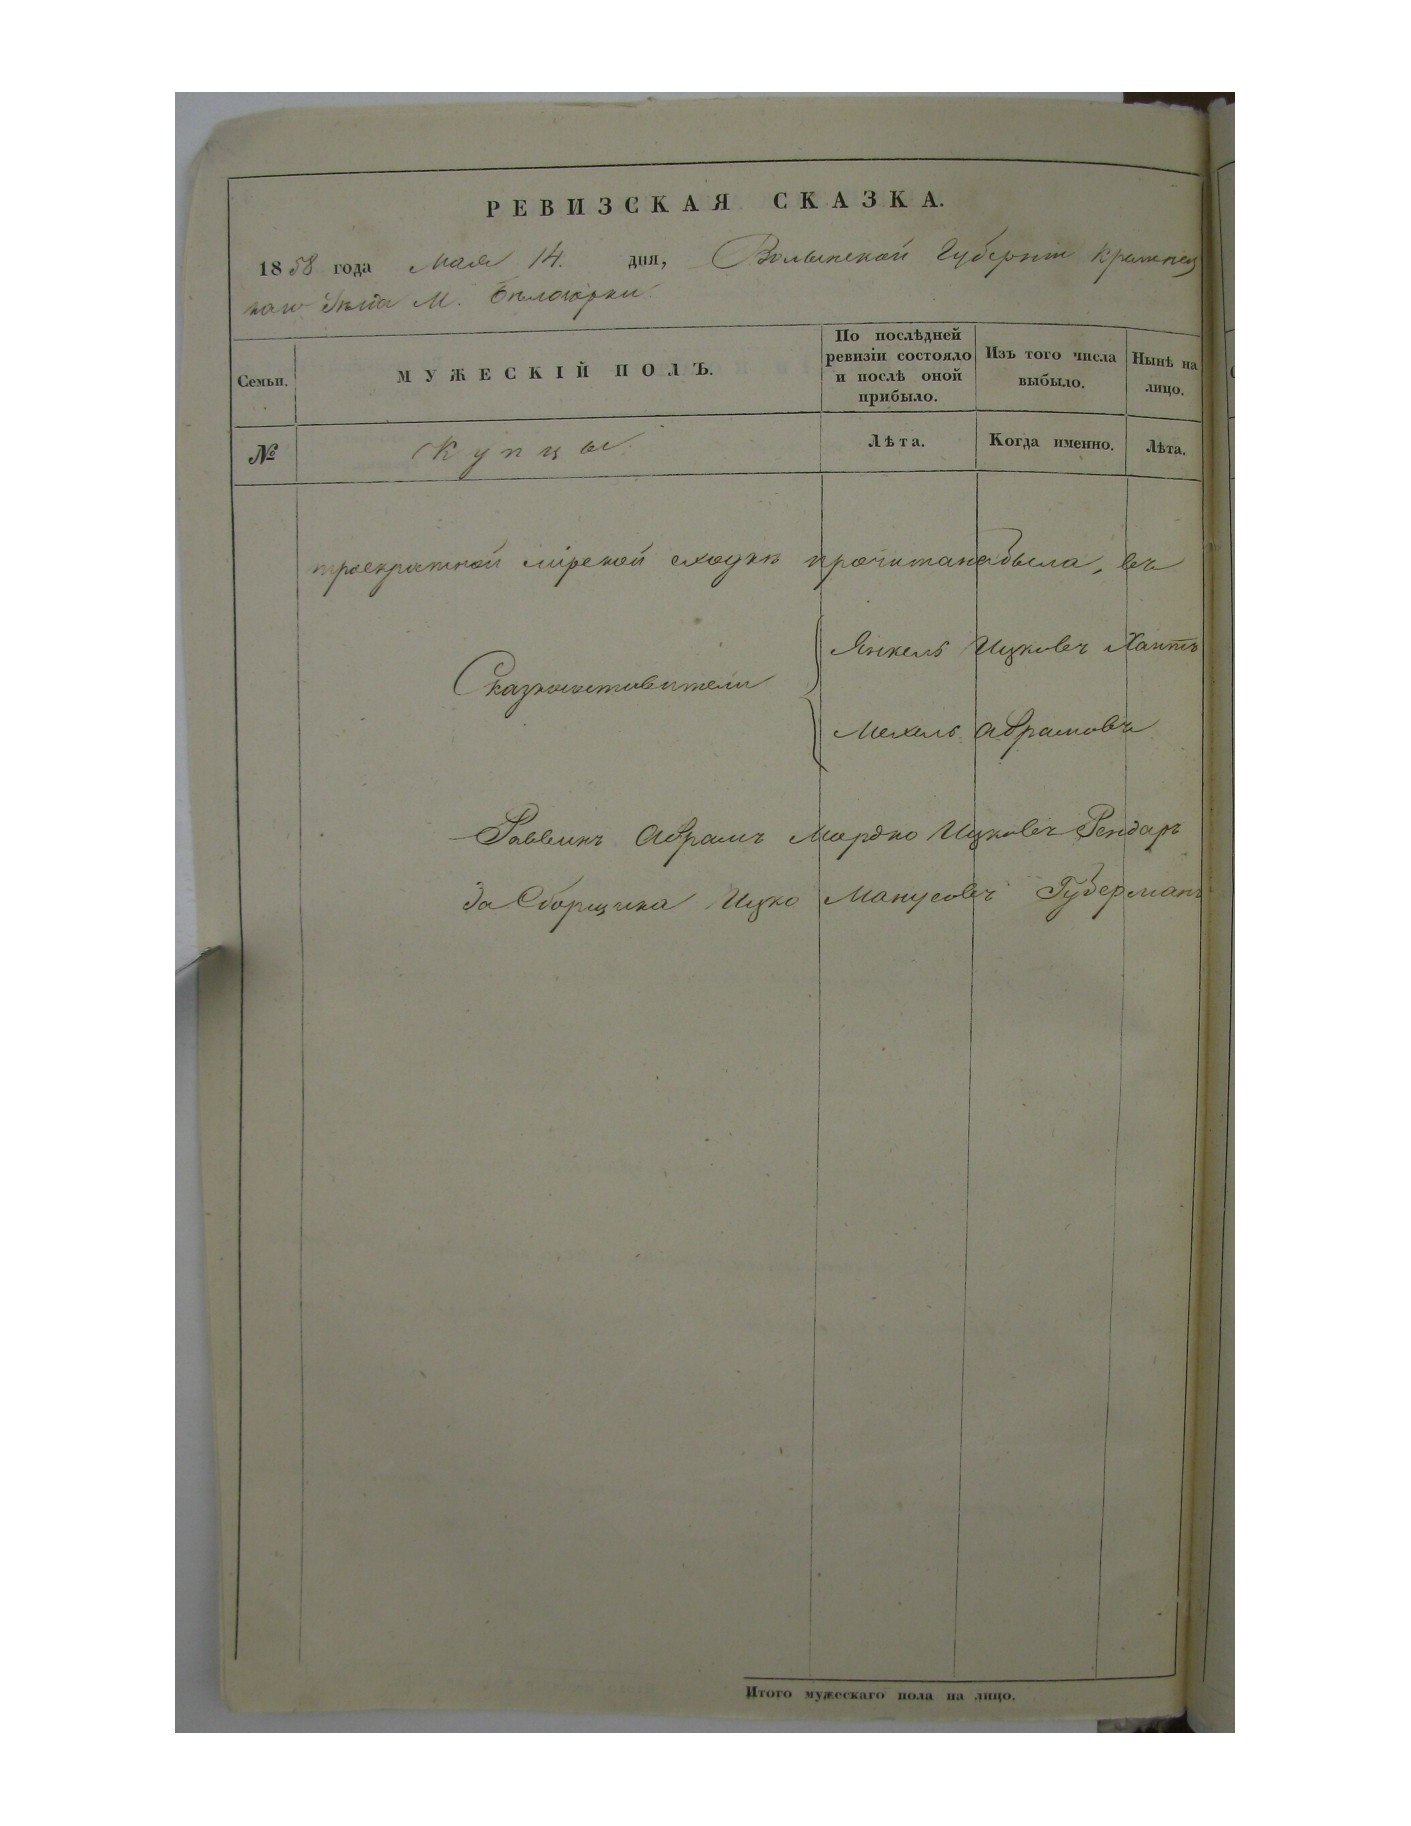 РЕВИЗСКАЯ СКАЗКА.
1858 года Мая 14. дня, Волынской Губерніи Кременец
каго Уезда М. Белозорки
Семьи. МУЖЕСКІЙ ПОЛЪ. По послѣдней ревизіи состояло и послѣ оной прибыло. Изъ того числа выбыло. Нынѣ на лицо.
№ Купцы Лѣта. Когда именно. Лѣта.
троекратной мірской сходкѣ прочитана была, въ
Сказкосоставители
Янкель Ицковъ
Мехель Абрамовъ
Раввинъ Абрамъ Мордко Ицковъ Рендаръ
За Сборщика Ицко Манусовъ Губерманъ
Итого мужескаго пола на лицо.